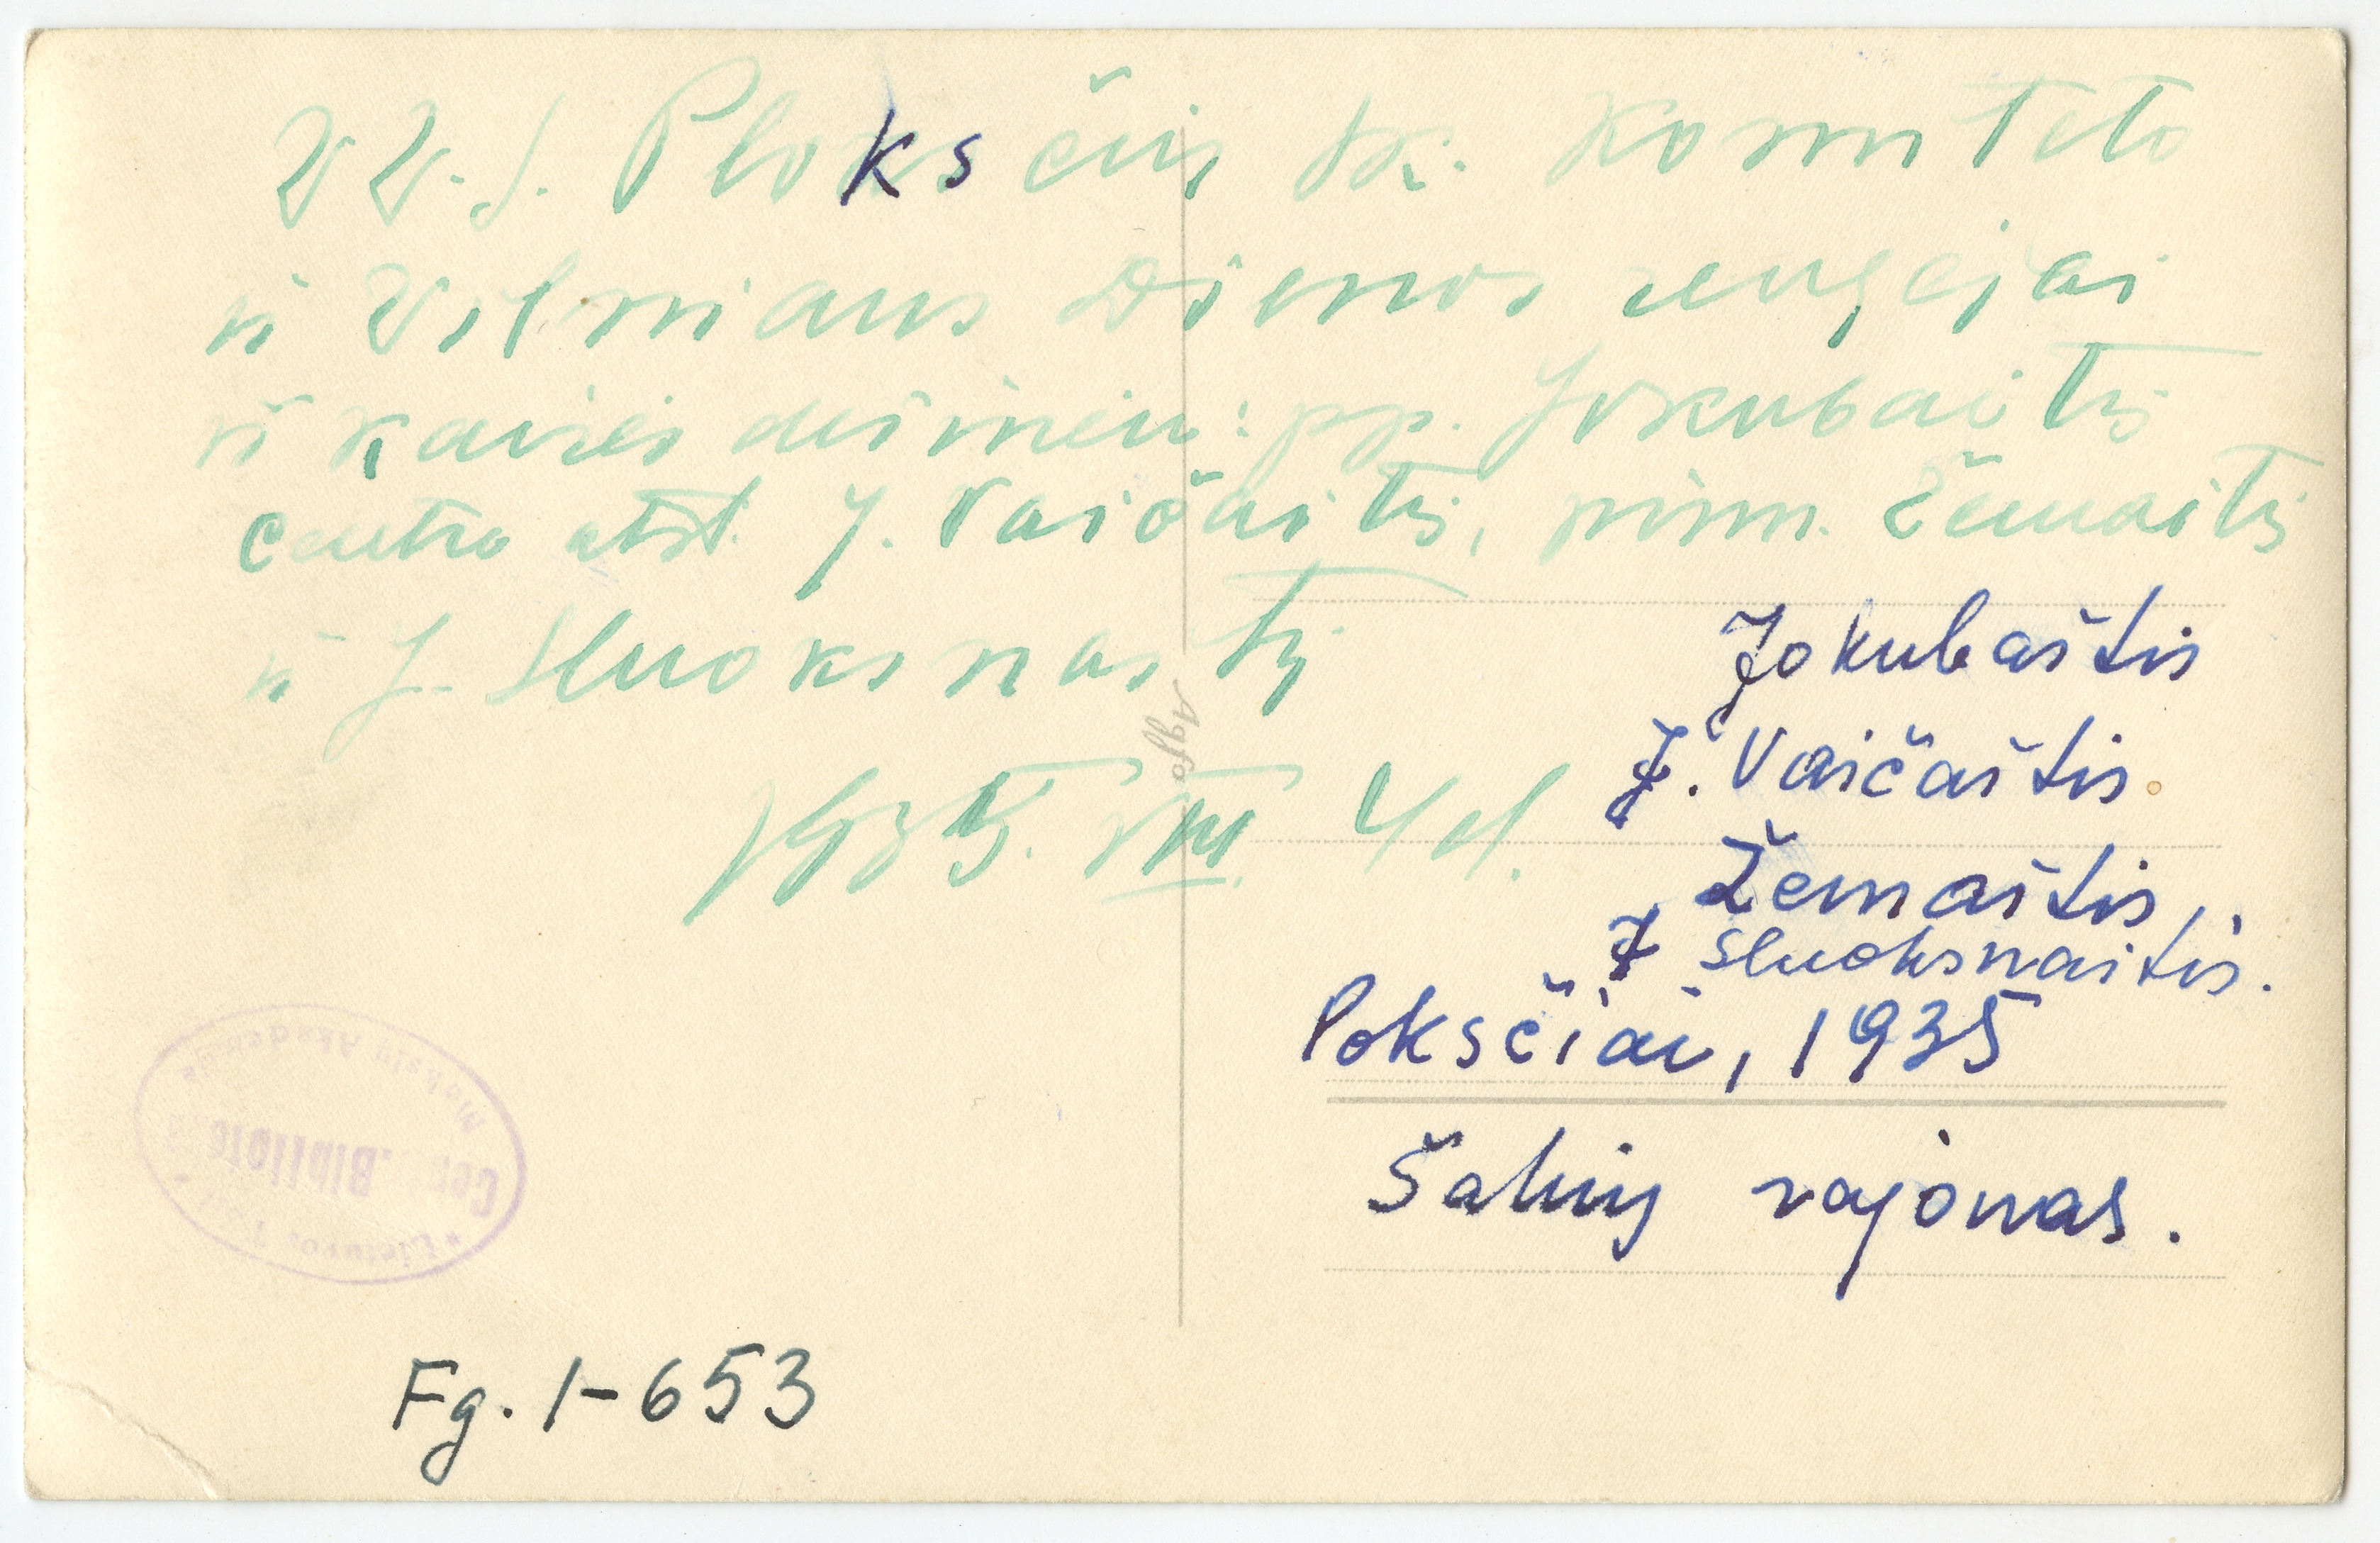 VV.S. Plokščių sk. Komiteto
ir Vilniaus Dienos rengėjai
iš kairės dešinėn: pp. Jokubaitis
Centro atst. J. Vaičaitis, pirm. Žemaitis
ir J. Sluoksnaitis
1935. VIII. 4 d.
Jokubaitis
J. Vaičaitis
Žemaitis,
J Sluoksnaitis.
Poksčiai, 1935
Šakių rajonas.
Agfa
Lietuvos TSR
Centr. Biblioteka
Mokslų Akademija
Fg. 1-653